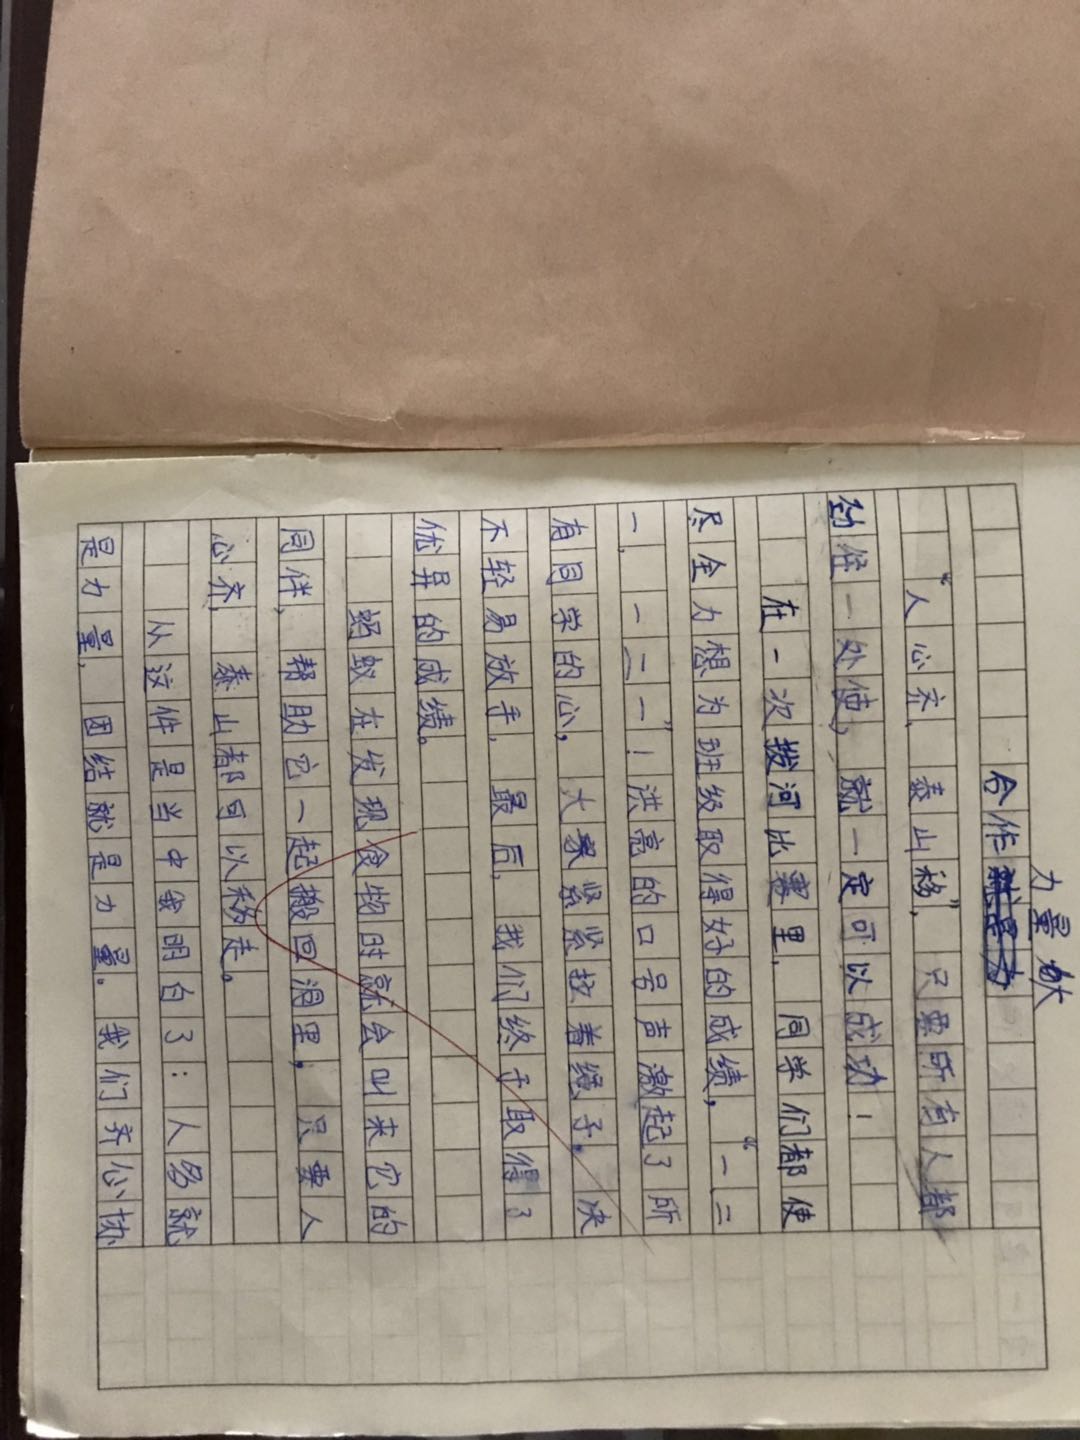 力量献
合作
“人心齐，泰山移”，只要所有人都
劲往一处使，就一定可以成功！
在一次拨河比赛里，同学们都使
尽全力想为班级取得好的成绩，“一二
一，一二一”！洪亮的口号声激起了所
有同学的心，大家紧紧抓着绳子，决
不轻易放手，最后，我们终于取得了
优异的成绩。
蚂蚁在发现食物时就会叫来它的
同伴，帮助它一起搬回洞里，只要人
心齐，泰山都可以移走。
从这件是当中我明白了：人多就
是力量，团结就是力量。我们齐心协